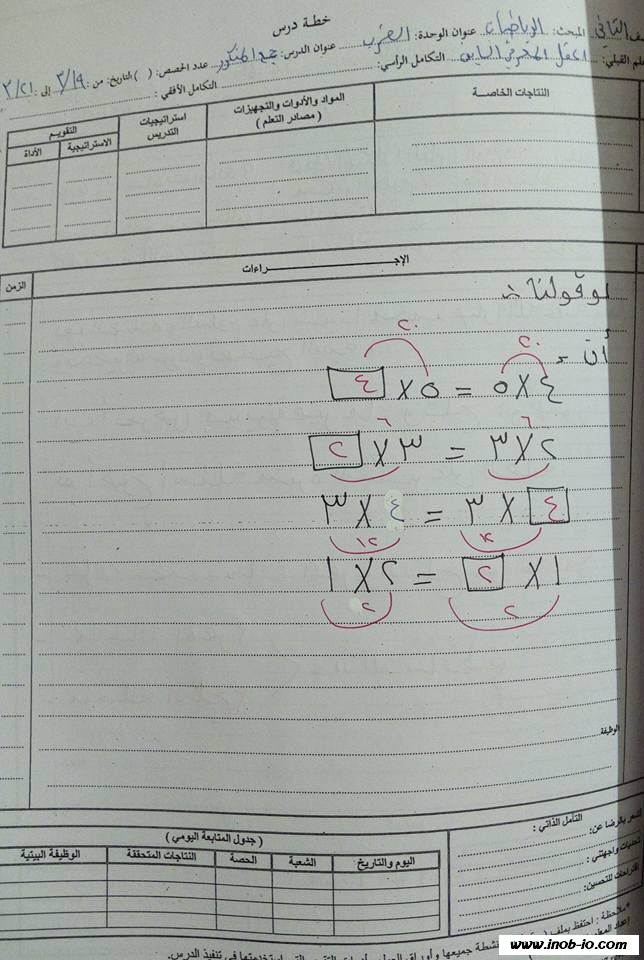 خطة درس
التاني المبحث: الرياضيات عنوان الوحدة: الضرب عنوان الدرس: جمع المتكرر عدد الحصص: ( ) التاريخ: من: ٣/١٩ إلى: ٣/٢١
القبلي: التكامل الرأسي: التكامل الأفقي:
النتاجات الخاصة
المواد والأدوات والتجهيزات
( مصادر التعلم )
استراتيجيات
التدريس
التقويم
الاستراتيجية
الأداة
الإجـــراءات
الزمن
أن =
٢٠ ٢٠
٤ X ٥ = ٥ X ٤
٦ ٦
٢ X ٣ = ٣ X ٢
٤ X ٣ = ٤ X ٣
١٢
١ X ٢ = ٢ X ١
٢ ٢
الوظيفة
التأمل الذاتي :
بالرضا عن:
تحديات واجهتني :
اقتراحات للتحسين:
( جدول المتابعة اليومي )
اليوم والتاريخ
الشعبة
الحصة
النتاجات المتحققة
الوظيفة البيتية
*ملاحظة : احتفظ بملف
جميعها وأوراق العمل وأدوات التقويم التي استخدمتها في تنفيذ الدرس.
www.inob-io.com